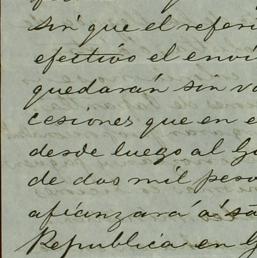 sin que el referi
efectivo el envi
quedarán sin va
cesiones que en e
desde luego al Go
de dos mil peso
afianzará á sa
Republica en G